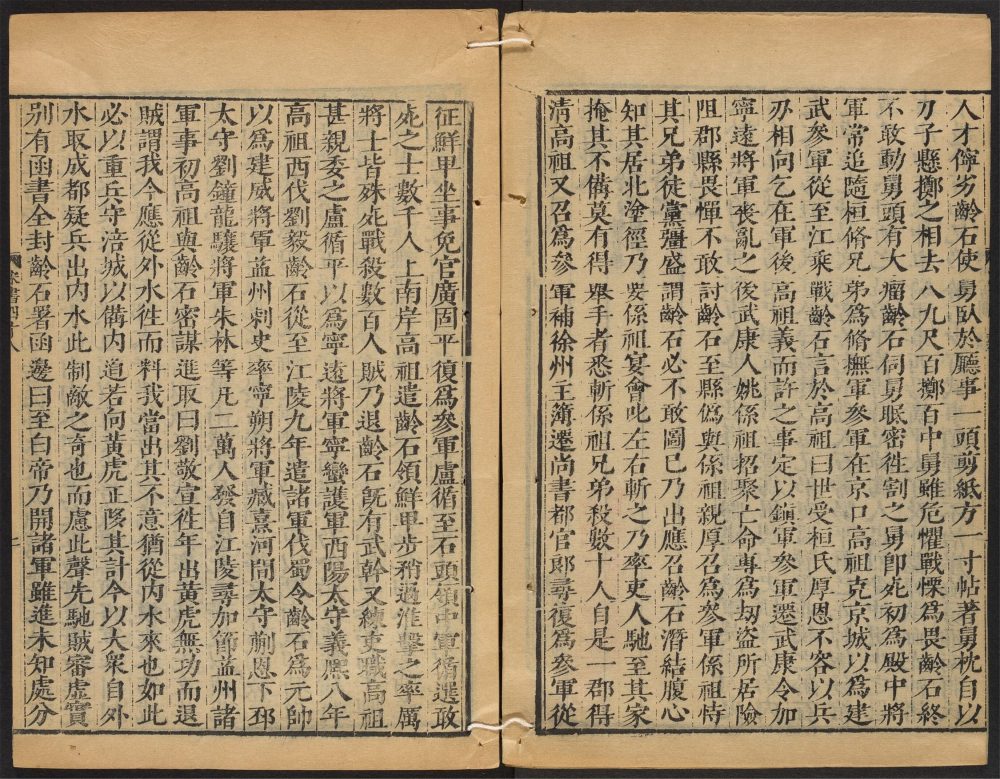 人才儜劣齡石使舅臥於廳事一頭剪紙方一寸帖著舅枕自以
刀子懸擲之相去八九尺百擲百中舅雖危懼戰慄為畏齡石終
不敢動舅頭有大瘤齡石伺舅眠密徃割之舅卽死初為殿中將
軍常追隨桓脩兄弟為脩撫軍參軍在京口高祖克京城以為建
武參軍從至江乘戰齡石言於高祖曰世受桓氏厚恩不容以兵
刃相向乞在軍後高祖義而許之事定以鎮軍參軍遷武康令加
寧遠將軍喪亂之後武康人姚係祖招聚亡命專為劫盜所居險
阻郡縣畏憚不敢討齡石至縣偽與係祖親厚召為參軍係祖恃
其兄弟徒黨彊盛謂齡石必不敢圖已乃出應召齡石潛結腹心
知其居北塗徑乃要係祖宴會叱左右斬之乃率吏人馳至其家
掩其不備莫有得舉手者悉斬係祖兄弟殺數十人自是一郡得
淸高祖又召為參軍補徐州主簿遷尚書都官郎尋復為參軍從
征鮮卑坐事免官廣固平復為參軍盧循至石頭領中軍循選敢
死之士數千人上南岸高祖遣齡石領鮮卑步稍過淮擊之率厲
將士皆殊死戰殺數百人賊乃退齡石旣有武幹又練吏職高祖
甚親委之盧循平以為寧遠將軍寧蠻護軍西陽太守義熙八年
高祖西伐劉毅齡石從至江陵九年遣諸軍伐蜀令齡石為元帥
以為建威將軍益州刺史率寧朔將軍臧熹河間太守蒯恩下邳
太守劉鐘龍驤將軍朱林等凡二萬人發自江陵尋加節益州諸
軍事初高祖與齡石密謀進取曰劉敬宣徃年出黃虎無功而退
賊謂我今應從外水徃而料我當出其不意猶從内水來也如此
必以重兵守涪城以備内道若向黃虎正陊其計今以大衆自外
水取成都疑兵出内水此制敵之奇也而慮此聲先馳賊審虛實
别有函書全封齡石署函邊曰至白帝乃開諸軍雖進未知處分
宋書四十八